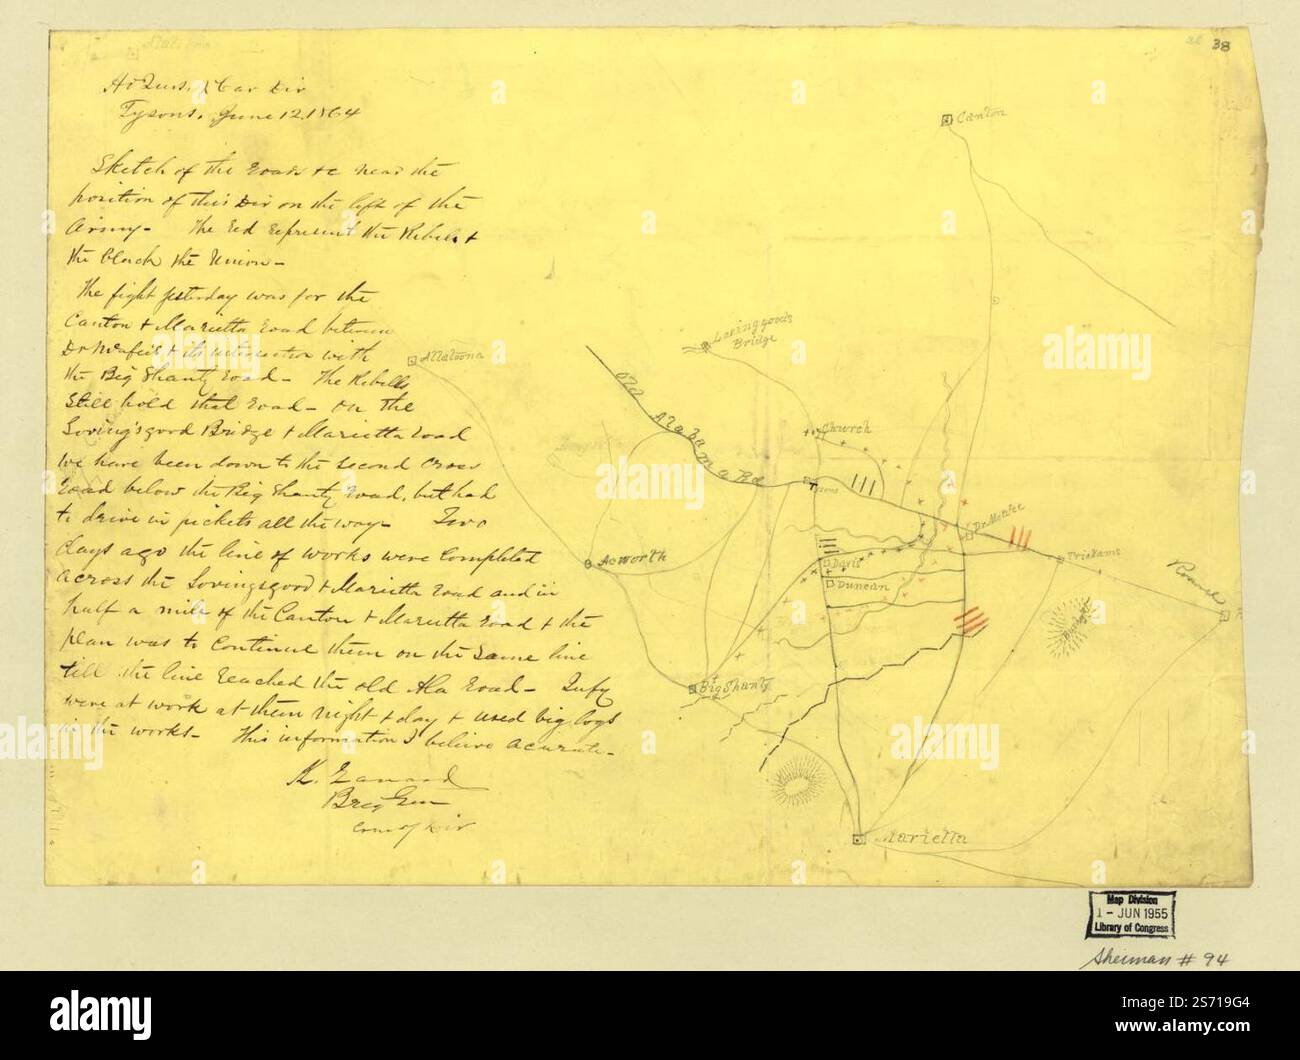 38
Hd Qurs. 2 Cav Div
Tysons, June 12, 1864
Sketch of the roads &c near the
position of this Div on the left of the
Army - The red represent the Rebels &
the black the Union -
The fight yesterday was for the
Canton & Marietta road between
Dr McAfee's & its intersection with
the Big Shanty road - The Rebells
still hold that road - On the
Lovingsgood Bridge & Marietta road
we have been down to the second cross
road below the Big Shanty road, but had
to drive in pickets all the way - Two
days ago the line of works were completed
across the Lovingsgood & Marietta road and in
half a mile of the Canton & Marietta road & the
plan was to continue them on the same line
till the line reached the old Ala road - Infy
were at work at them night & day & used big logs
in the works - This information I believe acurate -
K. Garrard
Brig Gen
Com'g Div
Canton
Lovinggoods
Bridge
Allatoona
Old Alabama Rd
Church
Tysons
Dr. McAfee
Acworth
Davis
Duncan
Trickams
Roswell
Big Shanty
Marietta
Map Division
1 - JUN 1955
Library of Congress
Sherman # 94
alamy
Image ID: 2S719G4
www.alamy.com